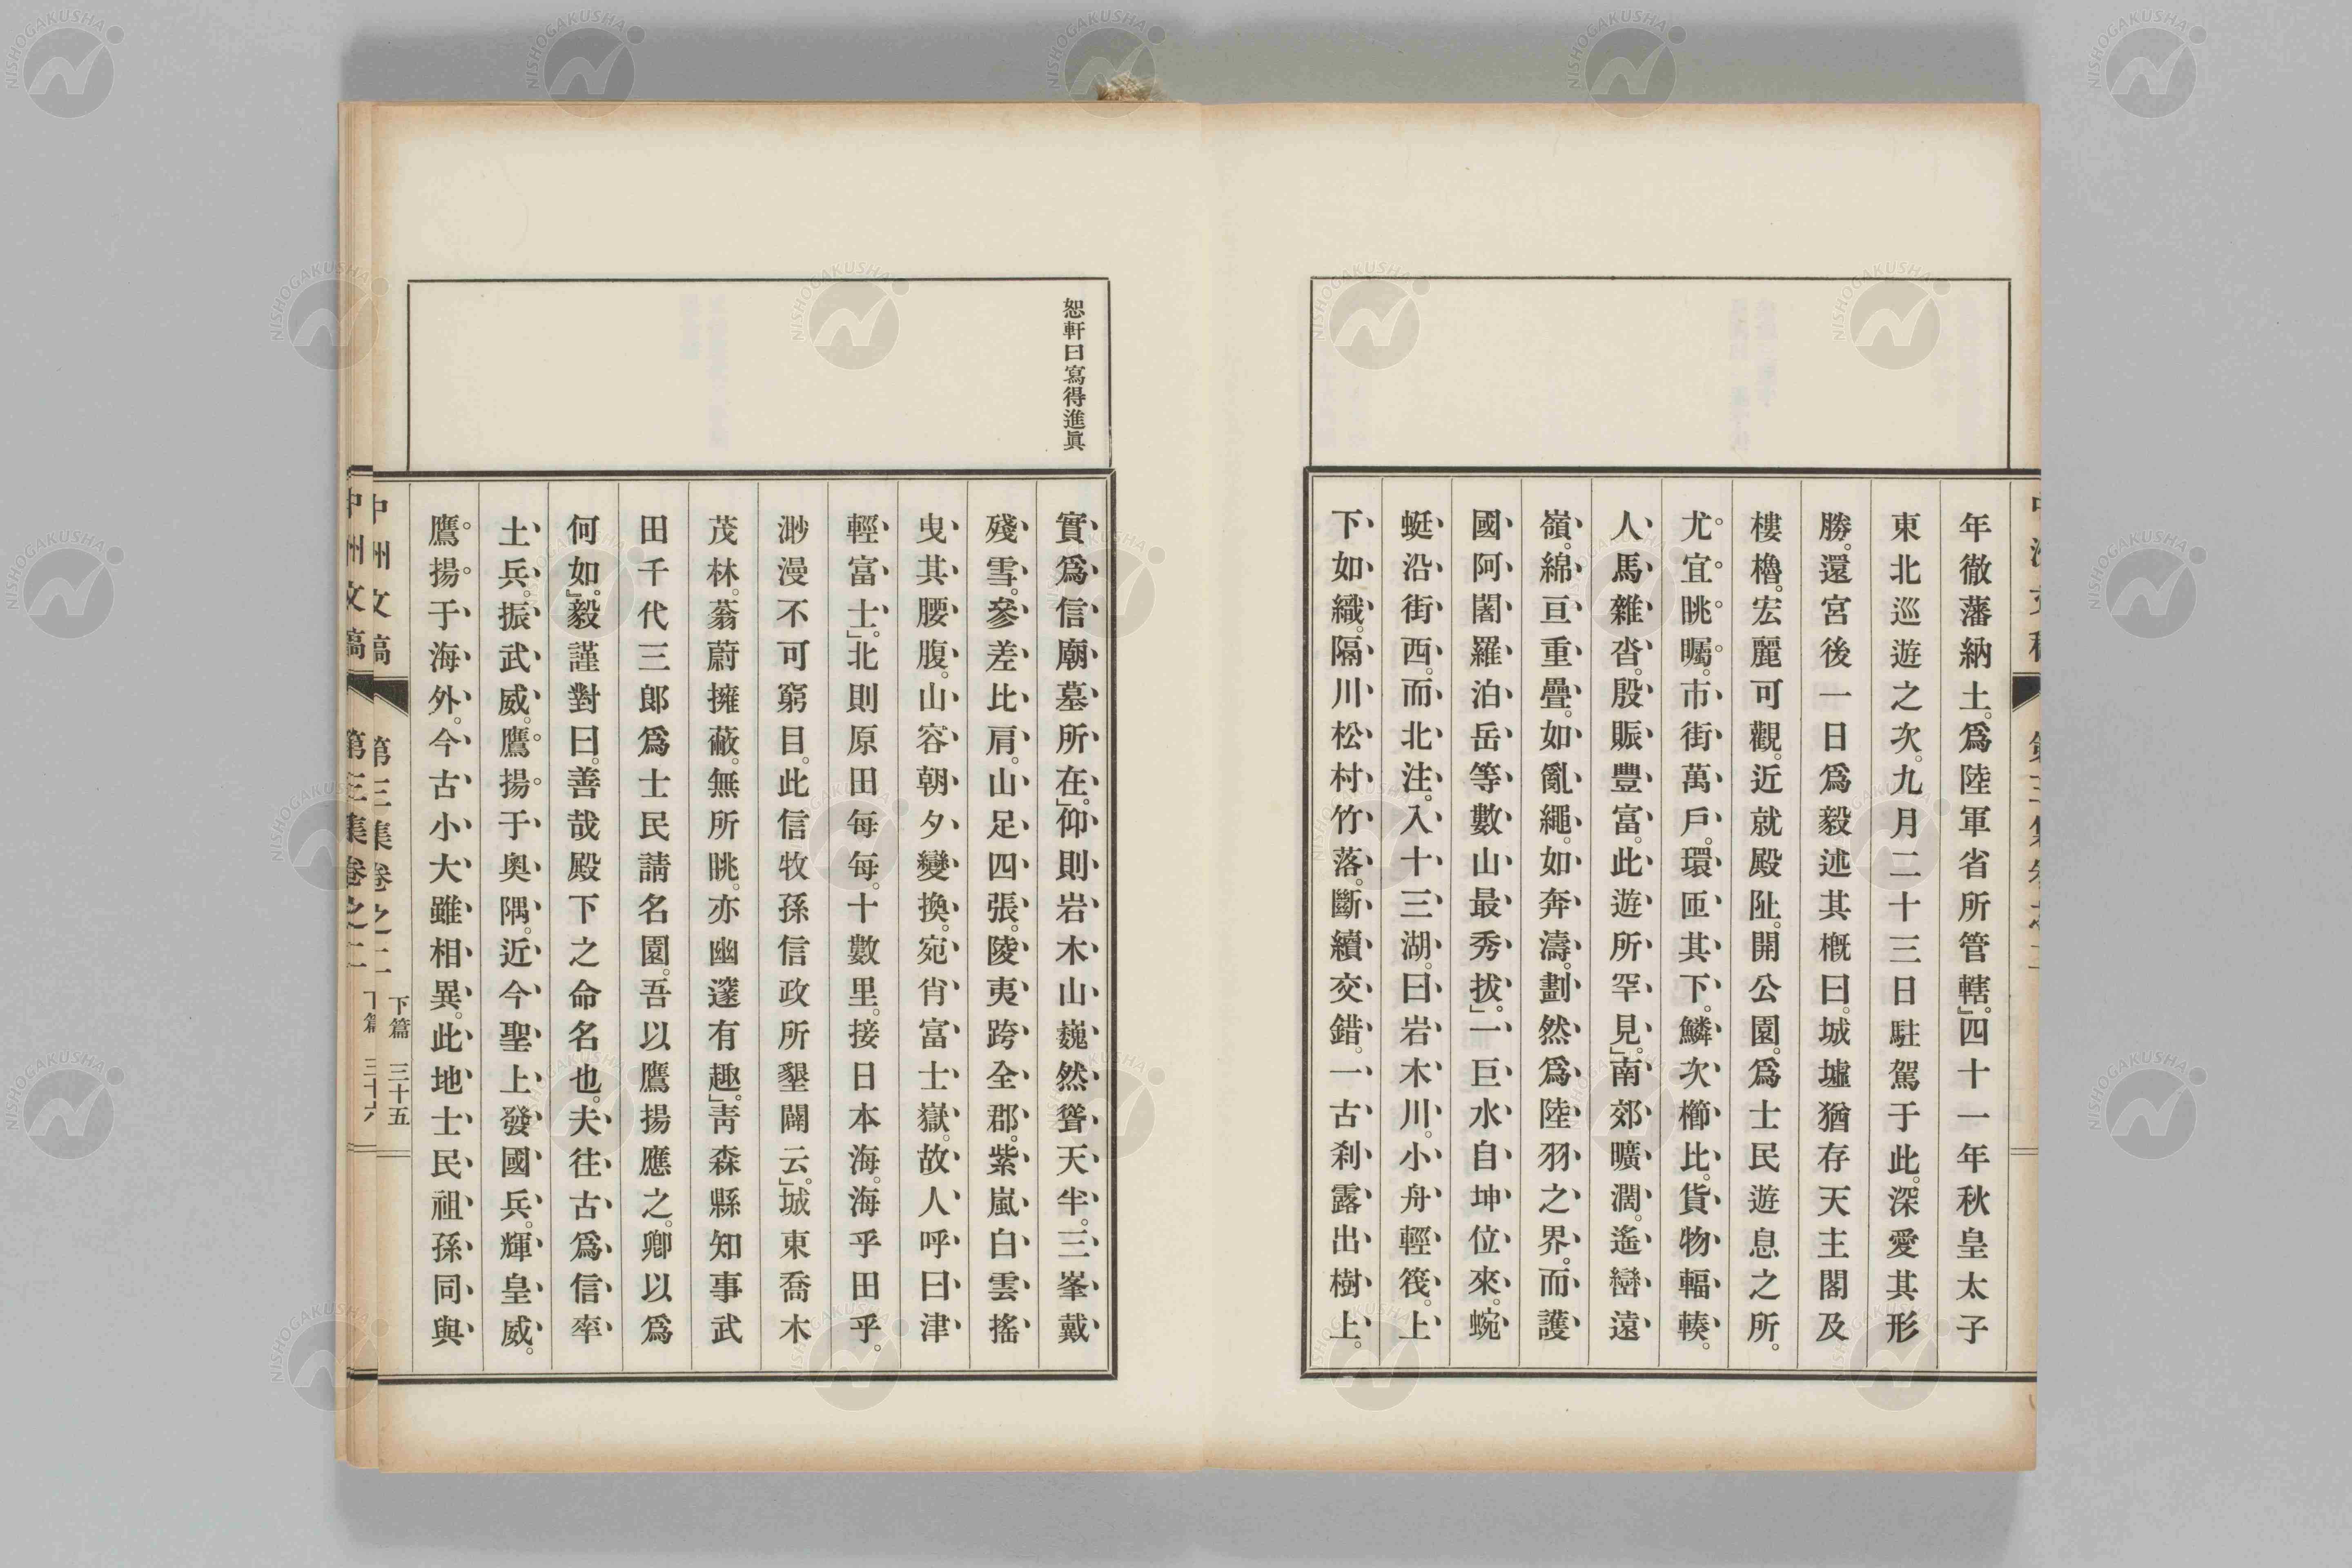 年徹藩納土。爲陸軍省所管轄。』四十一年秋皇太子
東北巡遊之次。九月二十三日駐駕于此。深愛其形
勝。還宮後一日爲毅述其概曰。城墟猶存天主閣及
樓櫓。宏麗可觀。近就殿阯。開公園。爲士民遊息之所。
尤宜眺矚。市街萬戶。環匝其下。鱗次櫛比。貨物輻輳。
人馬雜沓。殷賑豐富。此遊所罕見。』南郊曠濶。遙巒遠
嶺。綿亘重疊。如亂繩。如奔濤。劃然爲陸羽之界。而護
國阿闍羅泊岳等數山最秀拔。』一巨水自坤位來。蜿
蜓沿街西。而北注。入十三湖。曰岩木川。小舟輕筏。上
下如織。隔川松村竹落。斷續交錯。一古刹露出樹上。
恕軒曰寫得進眞
實爲信廟墓所在。』仰則岩木山巍然聳天半。三峯戴
殘雪。參差比肩。山足四張。陵夷跨全郡。紫嵐白雲搖
曳其腰腹。山容朝夕變換。宛肖富士嶽。故人呼曰津
輕富士。』北則原田每每。十數里。接日本海。海乎田乎。
渺漫不可窮目。此信牧孫信政所墾闢云。』城東喬木
茂林。蓊蔚擁蔽。無所眺。亦幽邃有趣。』靑森縣知事武
田千代三郎爲士民請名園。吾以鷹揚應之。卿以爲
何如。』毅謹對曰。善哉殿下之命名也。夫往古爲信率
土兵。振武威。鷹揚于奧隅。近今聖上發國兵。輝皇威。
鷹揚于海外。今古小大雖相異。此地士民祖孫同與
中州文稿 第三集卷之二 下篇 三十五
中州文稿 第三集卷之二 下篇 三十六